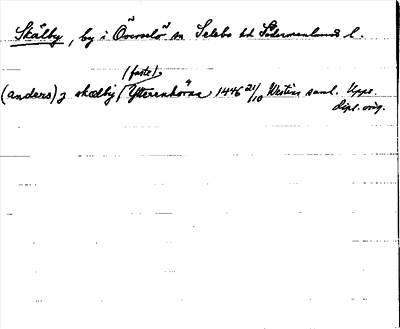 Skålby, by i Överselö sn Selebo hd Södermanlands l.
(faste)
(anders) j skælby (Ytterenhörna 1446 21/10 Westins saml. Upps.
dipl. orig.